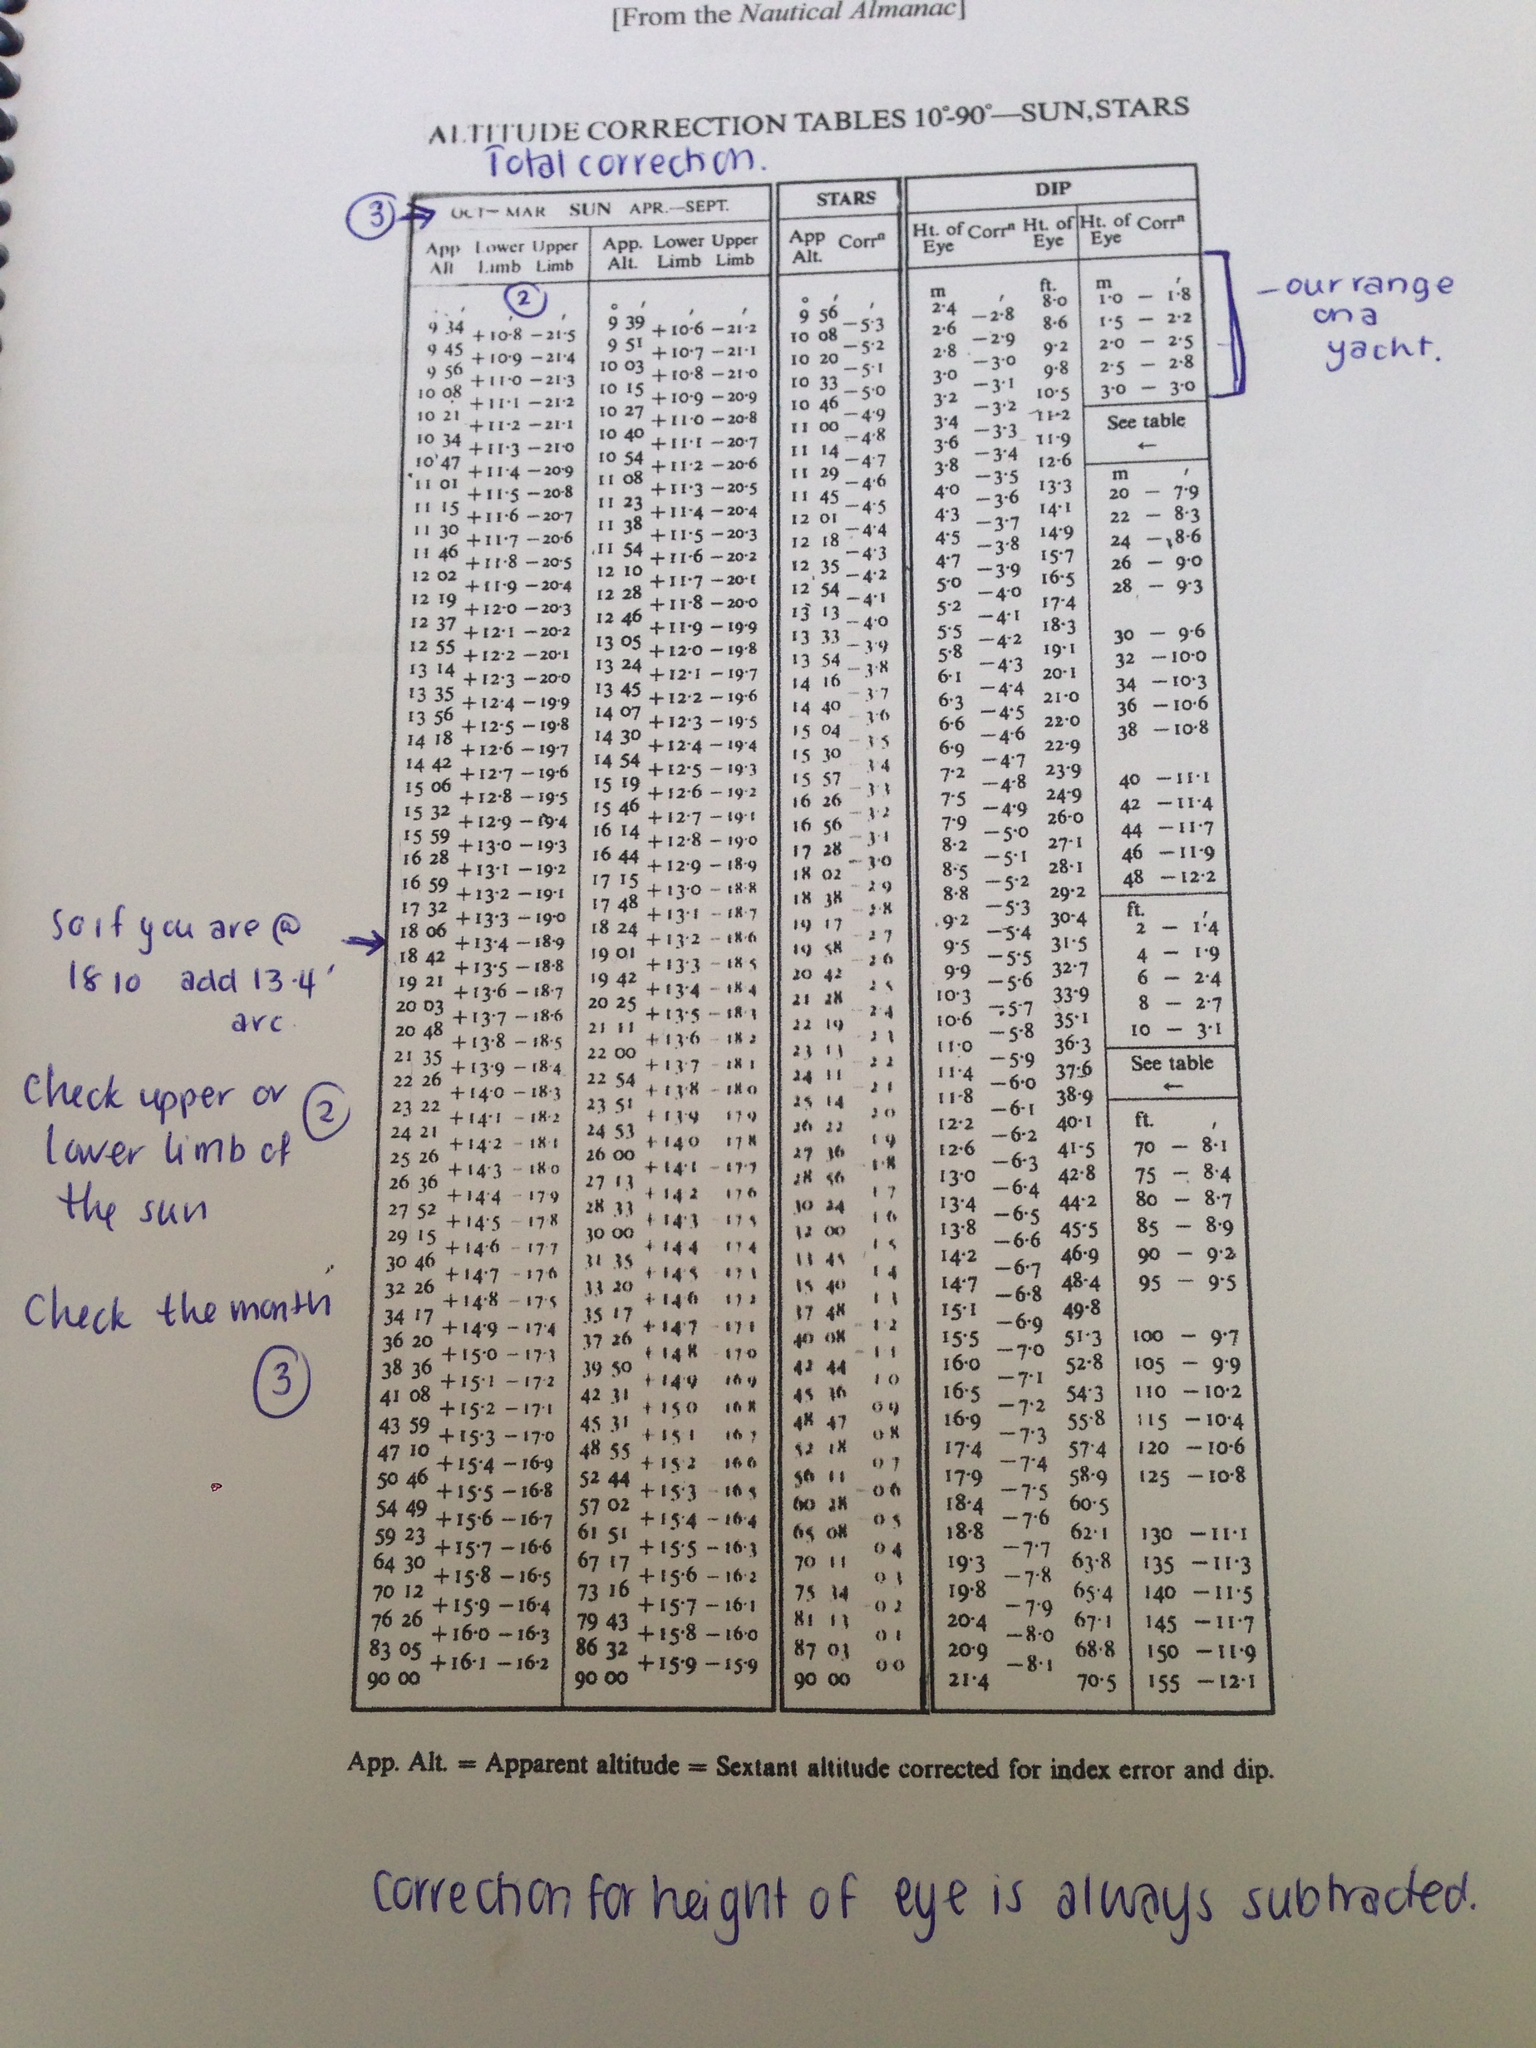 [From the Nautical Almanac]
ALTITUDE CORRECTION TABLES 10°-90°—SUN, STARS
Total correction.
③ → OCT—MAR SUN APR.—SEPT.
App Alt Lower Limb Upper Limb
②
° ′ ′ ′
9 34
+10·8 −21·5
9 45
+10·9 −21·4
9 56
+11·0 −21·3
10 08
+11·1 −21·2
10 21
+11·2 −21·1
10 34
+11·3 −21·0
10 47
+11·4 −20·9
11 01
+11·5 −20·8
11 15
+11·6 −20·7
11 30
+11·7 −20·6
11 46
+11·8 −20·5
12 02
+11·9 −20·4
12 19
+12·0 −20·3
12 37
+12·1 −20·2
12 55
+12·2 −20·1
13 14
+12·3 −20·0
13 35
+12·4 −19·9
13 56
+12·5 −19·8
14 18
+12·6 −19·7
14 42
+12·7 −19·6
15 06
+12·8 −19·5
15 32
+12·9 −19·4
15 59
+13·0 −19·3
16 28
+13·1 −19·2
16 59
+13·2 −19·1
17 32
+13·3 −19·0
18 06
+13·4 −18·9
18 42
+13·5 −18·8
19 21
+13·6 −18·7
20 03
+13·7 −18·6
20 48
+13·8 −18·5
21 35
+13·9 −18·4
22 26
+14·0 −18·3
23 22
+14·1 −18·2
24 21
+14·2 −18·1
25 26
+14·3 −18·0
26 36
+14·4 −17·9
27 52
+14·5 −17·8
29 15
+14·6 −17·7
30 46
+14·7 −17·6
32 26
+14·8 −17·5
34 17
+14·9 −17·4
36 20
+15·0 −17·3
38 36
+15·1 −17·2
41 08
+15·2 −17·1
43 59
+15·3 −17·0
47 10
+15·4 −16·9
50 46
+15·5 −16·8
54 49
+15·6 −16·7
59 23
+15·7 −16·6
64 30
+15·8 −16·5
70 12
+15·9 −16·4
76 26
+16·0 −16·3
83 05
+16·1 −16·2
90 00
App. Alt. Lower Limb Upper Limb
° ′ ′ ′
9 39
+10·6 −21·2
9 51
+10·7 −21·1
10 03
+10·8 −21·0
10 15
+10·9 −20·9
10 27
+11·0 −20·8
10 40
+11·1 −20·7
10 54
+11·2 −20·6
11 08
+11·3 −20·5
11 23
+11·4 −20·4
11 38
+11·5 −20·3
11 54
+11·6 −20·2
12 10
+11·7 −20·1
12 28
+11·8 −20·0
12 46
+11·9 −19·9
13 05
+12·0 −19·8
13 24
+12·1 −19·7
13 45
+12·2 −19·6
14 07
+12·3 −19·5
14 30
+12·4 −19·4
14 54
+12·5 −19·3
15 19
+12·6 −19·2
15 46
+12·7 −19·1
16 14
+12·8 −19·0
16 44
+12·9 −18·9
17 15
+13·0 −18·8
17 48
+13·1 −18·7
18 24
+13·2 −18·6
19 01
+13·3 −18·5
19 42
+13·4 −18·4
20 25
+13·5 −18·3
21 11
+13·6 −18·2
22 00
+13·7 −18·1
22 54
+13·8 −18·0
23 51
+13·9 17·9
24 53
+14·0 17·8
26 00
+14·1 −17·7
27 13
+14·2 17·6
28 33
+14·3 17·5
30 00
+14·4 17·4
31 35
+14·5 −17·3
33 20
+14·6 17·2
35 17
+14·7 −17·1
37 26
+14·8 17·0
39 50
+14·9 16·9
42 31
+15·0 16·8
45 31
+15·1 16·7
48 55
+15·2 16·6
52 44
+15·3 −16·5
57 02
+15·4 −16·4
61 51
+15·5 −16·3
67 17
+15·6 −16·2
73 16
+15·7 −16·1
79 43
+15·8 −16·0
86 32
+15·9 −15·9
90 00
STARS
App Alt. Corrⁿ
° ′ ′
9 56
−5·3
10 08
−5·2
10 20
−5·1
10 33
−5·0
10 46
−4·9
11 00
−4·8
11 14
−4·7
11 29
−4·6
11 45
−4·5
12 01
−4·4
12 18
−4·3
12 35
−4·2
12 54
−4·1
13 13
−4·0
13 33
−3·9
13 54
−3·8
14 16
−3·7
14 40
−3·6
15 04
−3·5
15 30
3·4
15 57
−3·3
16 26
−3·2
16 56
−3·1
17 28
−3·0
18 02
2·9
18 38
−2·8
19 17
2·7
19 58
2·6
20 42
2·5
21 28
−2·4
22 19
2·3
23 13
2·2
24 11
2·1
25 14
2·0
26 22
1·9
27 36
1·8
28 56
1·7
30 24
1·6
32 00
1·5
33 45
1·4
35 40
1·3
37 48
1·2
40 08
1·1
42 44
1·0
45 36
0·9
48 47
0·8
52 18
0·7
56 11
0·6
60 28
0·5
65 08
0·4
70 11
0·3
75 34
0·2
81 13
0·1
87 03
0·0
90 00
DIP
Ht. of Eye Corrⁿ Ht. of Eye
m ′ ft.
2·4 8·0
−2·8
2·6 8·6
−2·9
2·8 9·2
−3·0
3·0 9·8
−3·1
3·2 10·5
−3·2
3·4 11·2
−3·3
3·6 11·9
−3·4
3·8 12·6
−3·5
4·0 13·3
−3·6
4·3 14·1
−3·7
4·5 14·9
−3·8
4·7 15·7
−3·9
5·0 16·5
−4·0
5·2 17·4
−4·1
5·5 18·3
−4·2
5·8 19·1
−4·3
6·1 20·1
−4·4
6·3 21·0
−4·5
6·6 22·0
−4·6
6·9 22·9
−4·7
7·2 23·9
−4·8
7·5 24·9
−4·9
7·9 26·0
−5·0
8·2 27·1
−5·1
8·5 28·1
−5·2
8·8 29·2
−5·3
9·2 30·4
−5·4
9·5 31·5
−5·5
9·9 32·7
−5·6
10·3 33·9
−5·7
10·6 35·1
−5·8
11·0 36·3
−5·9
11·4 37·6
−6·0
11·8 38·9
−6·1
12·2 40·1
−6·2
12·6 41·5
−6·3
13·0 42·8
−6·4
13·4 44·2
−6·5
13·8 45·5
−6·6
14·2 46·9
−6·7
14·7 48·4
−6·8
15·1 49·8
−6·9
15·5 51·3
−7·0
16·0 52·8
−7·1
16·5 54·3
−7·2
16·9 55·8
−7·3
17·4 57·4
−7·4
17·9 58·9
−7·5
18·4 60·5
−7·6
18·8 62·1
−7·7
19·3 63·8
−7·8
19·8 65·4
−7·9
20·4 67·1
−8·0
20·9 68·8
−8·1
21·4 70·5
Ht. of Eye Corrⁿ
m ′
1·0 − 1·8
1·5 − 2·2
2·0 − 2·5
2·5 − 2·8
3·0 − 3·0
See table
←
m ′
20 − 7·9
22 − 8·3
24 − 8·6
26 − 9·0
28 − 9·3
30 − 9·6
32 −10·0
34 −10·3
36 −10·6
38 −10·8
40 −11·1
42 −11·4
44 −11·7
46 −11·9
48 −12·2
ft. ′
2 − 1·4
4 − 1·9
6 − 2·4
8 − 2·7
10 − 3·1
See table
←
ft. ′
70 − 8·1
75 − 8·4
80 − 8·7
85 − 8·9
90 − 9·2
95 − 9·5
100 − 9·7
105 − 9·9
110 −10·2
115 −10·4
120 −10·6
125 −10·8
130 −11·1
135 −11·3
140 −11·5
145 −11·7
150 −11·9
155 −12·1
- our range
on a
yacht.
So if you are @
18 10 add 13.4'
arc
Check upper or ②
lower limb of
the sun
Check the month
③
App. Alt. = Apparent altitude = Sextant altitude corrected for index error and dip.
Correction for height of eye is always subtracted.